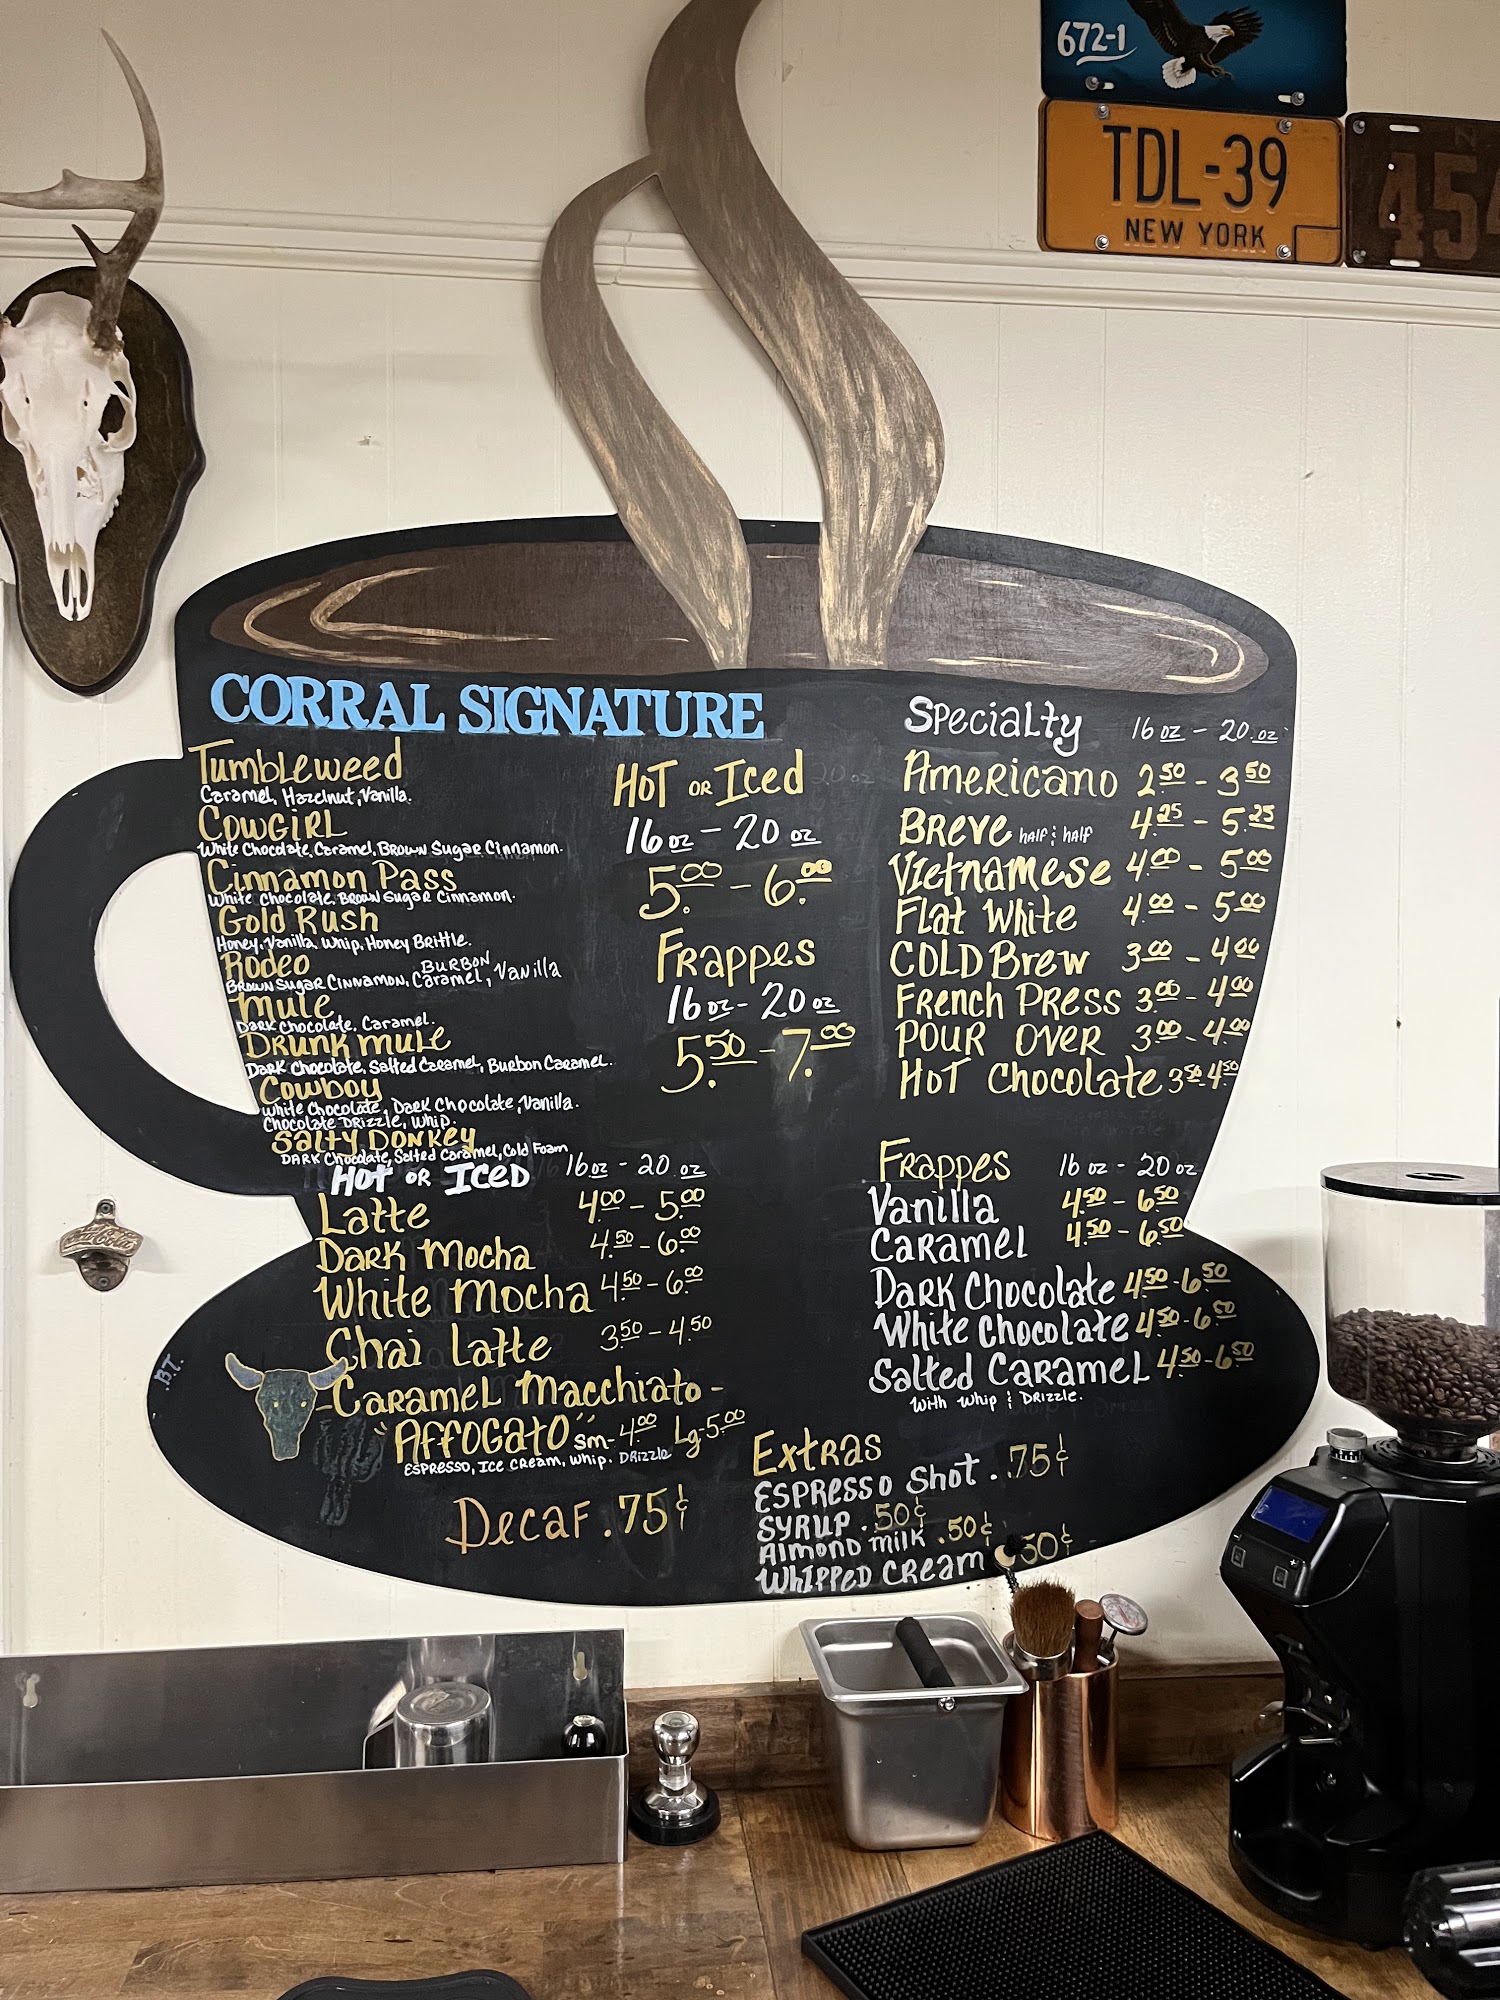 672-1
TDL-39
NEW YORK
454
CORRAL SIGNATURE
Tumbleweed
Caramel, Hazelnut, Vanilla.
Cowgirl
White Chocolate, Caramel, Brown Sugar Cinnamon.
Cinnamon Pass
White Chocolate, Brown Sugar Cinnamon.
Gold Rush
Honey, Vanilla, Whip, Honey Brittle.
Rodeo
Brown Sugar Cinnamon, Burbon Caramel, Vanilla
Mule
Dark Chocolate, Caramel.
Drunk Mule
Dark Chocolate, Salted Caramel, Burbon Caramel.
Cowboy
White Chocolate, Dark Chocolate, Vanilla.
Chocolate Drizzle, Whip.
Salty Donkey
Dark Chocolate, Salted Caramel, Cold Foam
Hot or Iced
16 oz - 20 oz
5.00 - 6.00
Frappes
16 oz - 20 oz
5.50 - 7.00
Hot or Iced 16 oz - 20 oz
Latte 4.00 - 5.00
Dark Mocha 4.50 - 6.00
White Mocha 4.50 - 6.00
Chai Latte 3.50 - 4.50
Caramel Macchiato -
"Affogato" Sm - 4.00 Lg - 5.00
Espresso, Ice Cream, Whip. Drizzle
Decaf .75¢
B.T.
Specialty 16 oz - 20 oz
Americano 2.50 - 3.50
Breve half & half 4.25 - 5.25
Vietnamese 4.00 - 5.00
Flat White 4.00 - 5.00
Cold Brew 3.00 - 4.00
French Press 3.00 - 4.00
Pour Over 3.00 - 4.00
Hot Chocolate 3.50 - 4.50
Frappes 16 oz - 20 oz
Vanilla 4.50 - 6.50
Caramel 4.50 - 6.50
Dark Chocolate 4.50 - 6.50
White Chocolate 4.50 - 6.50
Salted Caramel 4.50 - 6.50
With Whip & Drizzle.
Extras
Espresso Shot .75¢
Syrup .50¢
Almond Milk .50¢
Whipped Cream .50¢